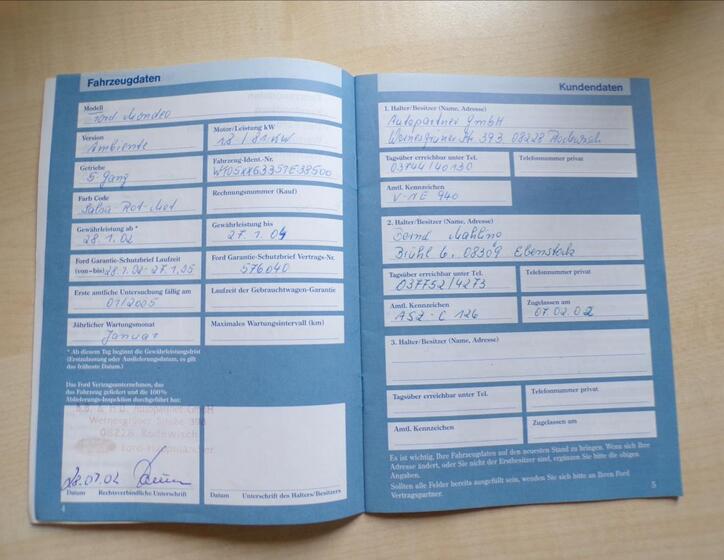 Fahrzeugdaten
Modell
Ford Mondeo
Version
Ambiente
Motor/Leistung kW
1,8 / 81 KW
Getriebe
5-Gang
Fahrzeug-Ident.-Nr.
Farb Code
Salsa Rot-Met
Rechnungsnummer (Kauf)
Gewährleistung ab *
28.1.02
Gewährleistung bis
27.1.04
Ford Garantie-Schutzbrief Laufzeit
(von–bis) 28.1.02-27.1.05
Ford Garantie-Schutzbrief Vertrags-Nr.
576040
Erste amtliche Untersuchung fällig am
01/2005
Laufzeit der Gebrauchtwagen-Garantie
Jährlicher Wartungsmonat
Januar
Maximales Wartungsintervall (km)
* Ab diesem Tag beginnt die Gewährleistungsfrist
(Erstzulassung oder Auslieferungsdatum, es gilt
das früheste Datum.)
Das Ford Vertragsunternehmen, das
das Fahrzeug geliefert und die 100%
Ablieferungs-Inspektion durchgeführt hat:
Autopartner GmbH
Wernesgrüner Straße 393
08228 Rodewisch
Ford-Haupthändler
28.01.02
Datum Rechtsverbindliche Unterschrift
Datum Unterschrift des Halters/Besitzers
4
Kundendaten
1. Halter/Besitzer (Name, Adresse)
Autopartner GmbH
Wernesgrüner Str. 393 08228 Rodewisch
Tagsüber erreichbar unter Tel.
03744/40130
Telefonnummer privat
Amtl. Kennzeichen
V-NE 940
2. Halter/Besitzer (Name, Adresse)
Bernd
Bühl 6, 08309 Eibenstock
Tagsüber erreichbar unter Tel.
037752/4273
Telefonnummer privat
Amtl. Kennzeichen
ASZ-C 126
Zugelassen am
07.02.02
3. Halter/Besitzer (Name, Adresse)
Tagsüber erreichbar unter Tel.
Telefonnummer privat
Amtl. Kennzeichen
Zugelassen am
Es ist wichtig, Ihre Fahrzeugdaten auf den neuesten Stand zu bringen. Wenn sich Ihre
Adresse ändert, oder Sie nicht der Erstbesitzer sind, ergänzen Sie bitte die obigen
Angaben.
Sollten alle Felder bereits ausgefüllt sein, wenden Sie sich bitte an Ihren Ford
Vertragspartner.
5